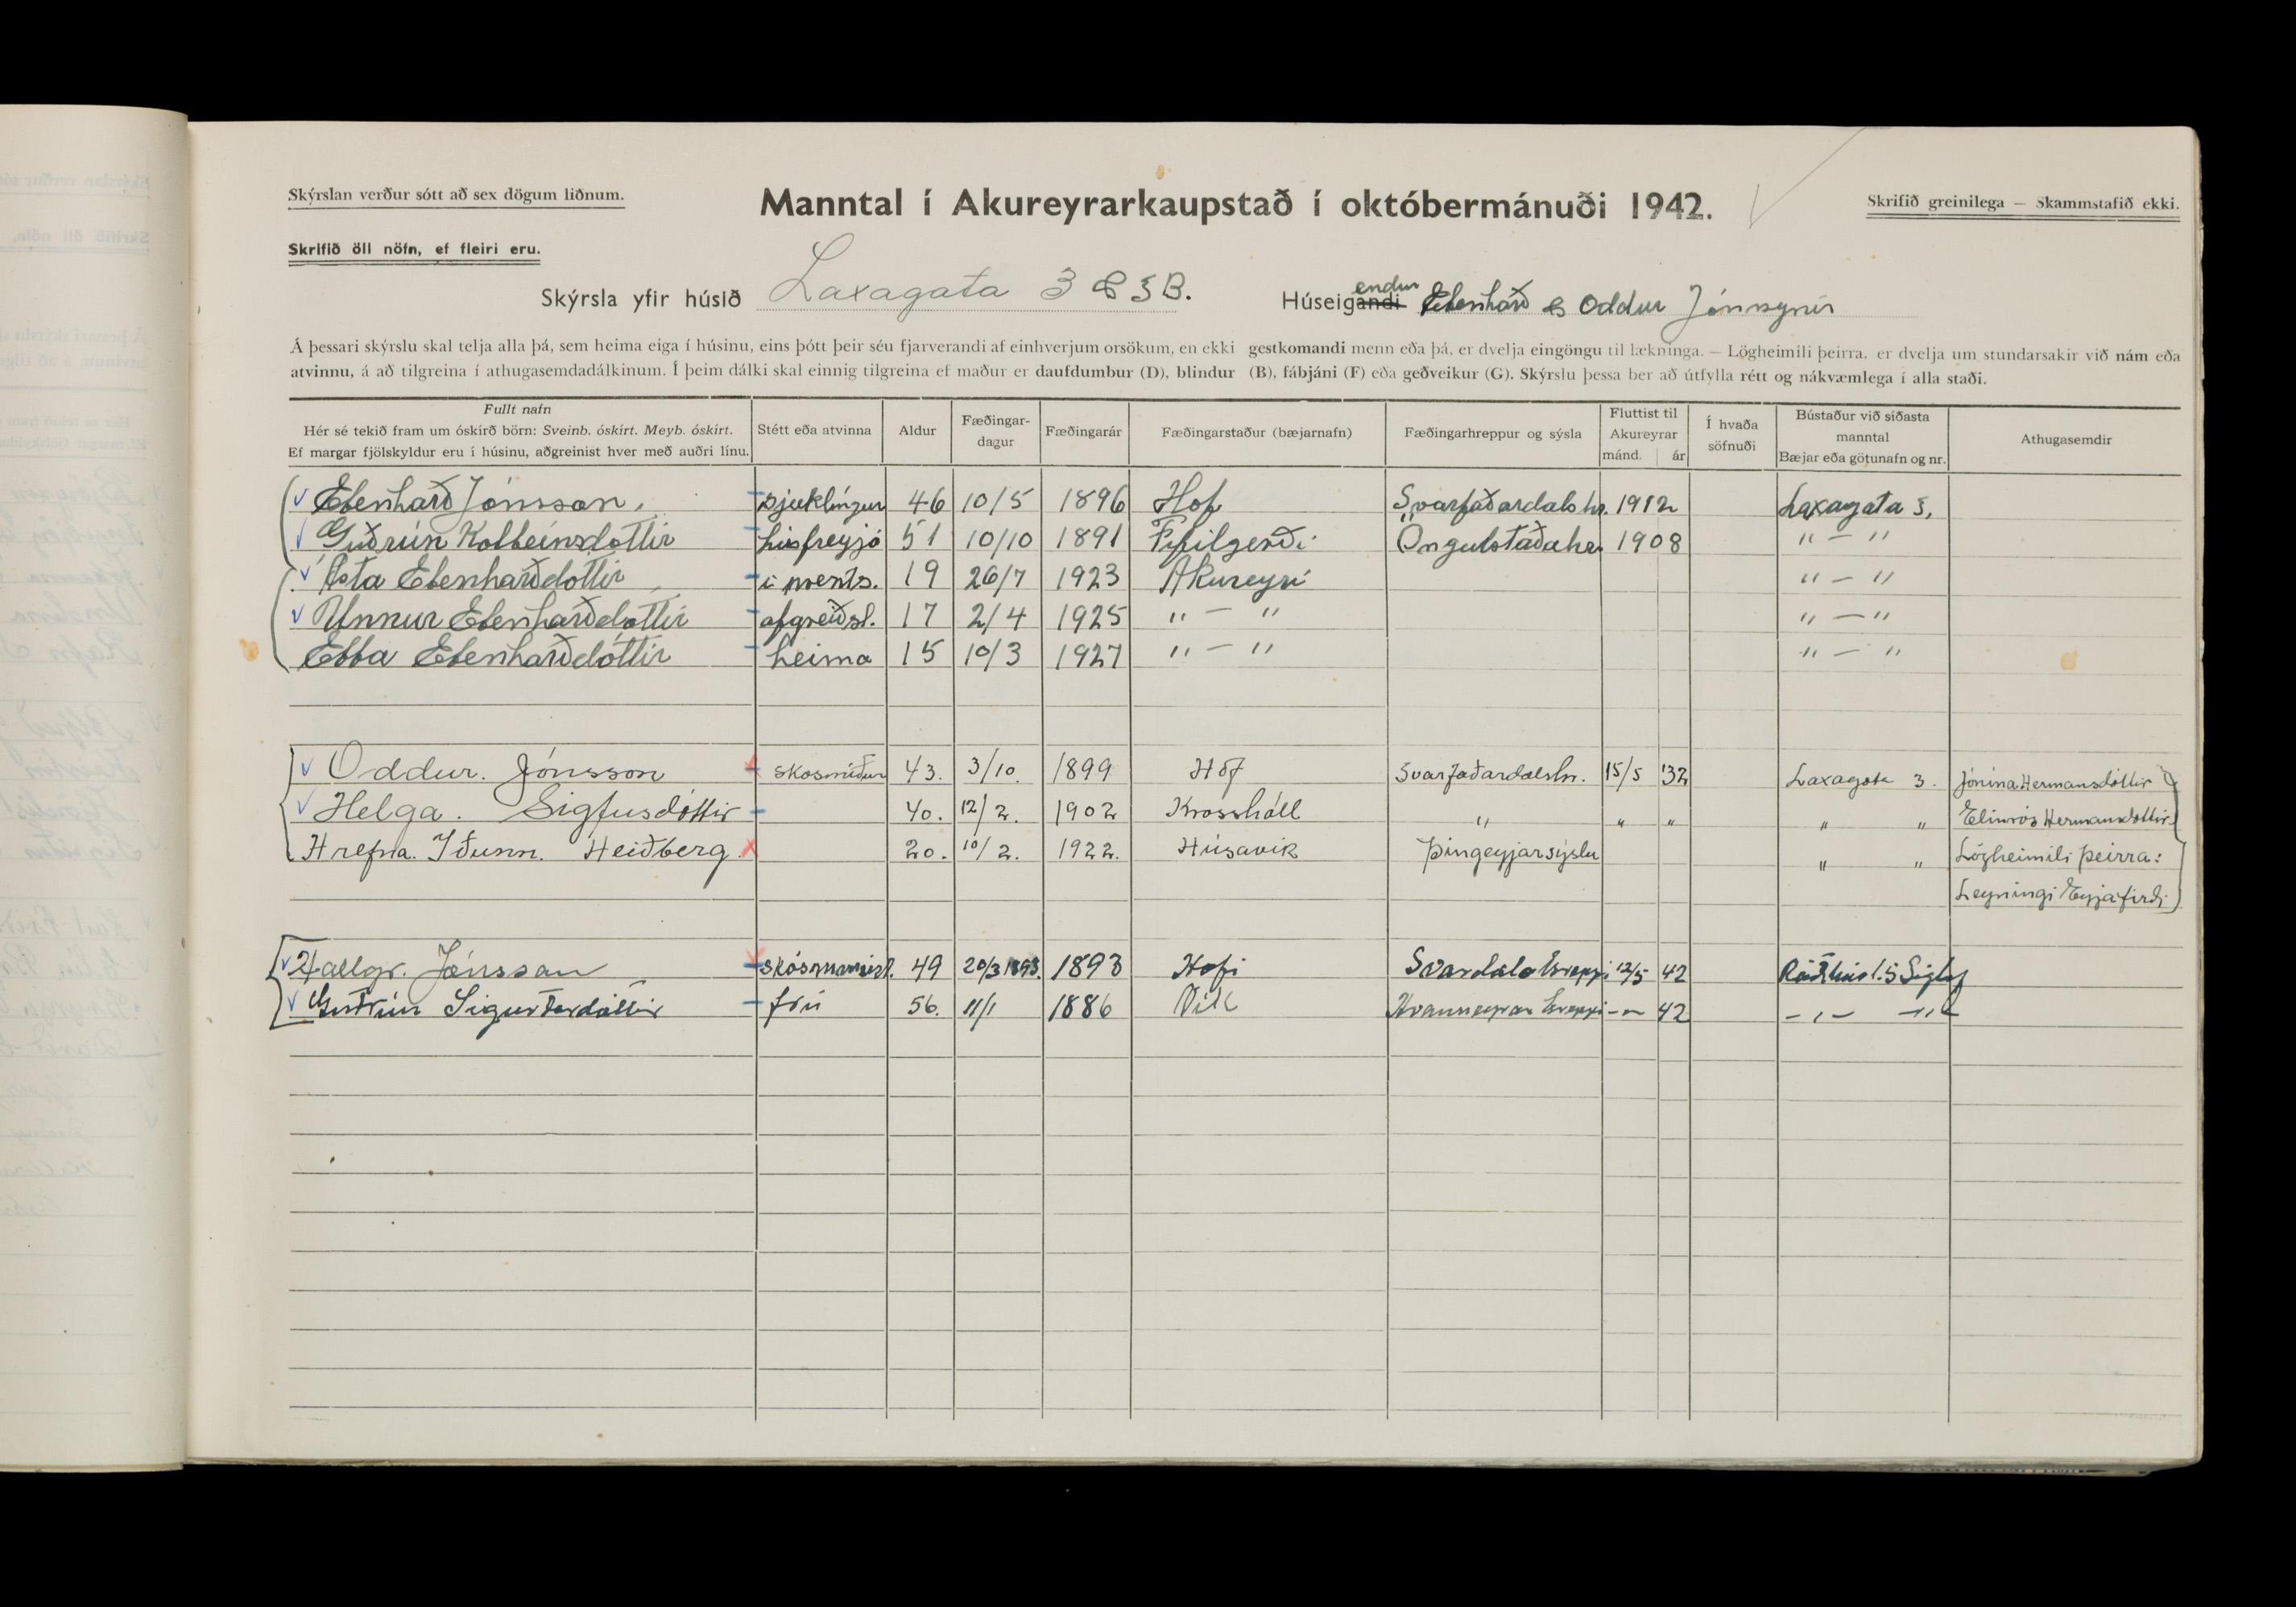 Skýrslan verður sótt að sex dögum liðnum.
Manntal í Akureyrarkaupstað í októbermánuði 1942.
Skrifið greinilega — Skammstafið ekki.
Skrifið öll nöfn, ef fleiri eru.
Skýrsla yfir húsið Laxagata 3 & 3B. Húseigandi endur Ebenharð & Oddur Jónssynir
Á þessari skýrslu skal telja alla þá, sem heima eiga í húsinu, eins þótt þeir séu fjarverandi af einhverjum orsökum, en ekki gestkomandi menn eða þá, er dvelja eingöngu til lækninga. — Lögheimili þeirra, er dvelja um stundarsakir við nám eða
atvinnu, á að tilgreina í athugasemdadálkinum. Í þeim dálki skal einnig tilgreina ef maður er daufdumbur (D), blindur (B), fábjáni (F) eða geðveikur (G). Skýrslu þessa ber að útfylla rétt og nákvæmlega í alla staði.
Fullt nafn
Hér sé tekið fram um óskírð börn: Sveinb. óskírt. Meyb. óskírt.
Ef margar fjölskyldur eru í húsinu, aðgreinist hver með auðri línu.
Stétt eða atvinna
Aldur
Fæðingar-
dagur
Fæðingarár
Fæðingarstaður (bæjarnafn)
Fæðingarhreppur og sýsla
Fluttist til
Akureyrar
mánd. ár
Í hvaða
söfnuði
Bústaður við síðasta
manntal
Bæjar eða götunafn og nr.
Athugasemdir
Ebenharð Jónsson. sjúklingur 46 10/5 1896 Hof Svarfaðardalshr. 1912 Laxagata 3.
Guðrún Kolbeinsdottir húsfreyja 51 10/10 1891 Fífilgerði Öngulstaðahr. 1908 " — "
Ásta Ebenharðdottir í prents. 19 26/7 1923 Akureyri " — "
Unnur Ebenharðdottir afgreiðsl. 17 2/4 1925 " — " " — "
Ebba Ebenharðdóttir heima 15 10/3 1927 " — " " — "
Oddur. Jónsson skosmiður 43. 3/10. 1899 Hof Svarfaðardalshr. 15/5 '32 Laxagata 3. Jónína Hermansdóttir
Helga. Sigfusdóttir 40. 12/2. 1902 Krosshóll " " " " " Elinrós Hermansdottir
Hrefna. Iðunn. Heiðberg 20. 10/2. 1922. Húsavík Þingeyjarsýslu " " Lögheimili þeirra:
Leyningi Eyjafirði
Hallgr. Jónsson skósmmeist. 49 20/3 1893. 1893 Hofi Svardals hreppi 12/5 42 Ráðhúst. 5 Sigluf
Guðrún Sigurðardóttir frú 56. 11/1 1886 Vík Hvanneyrar hreppi -"- 42 -"- -"-